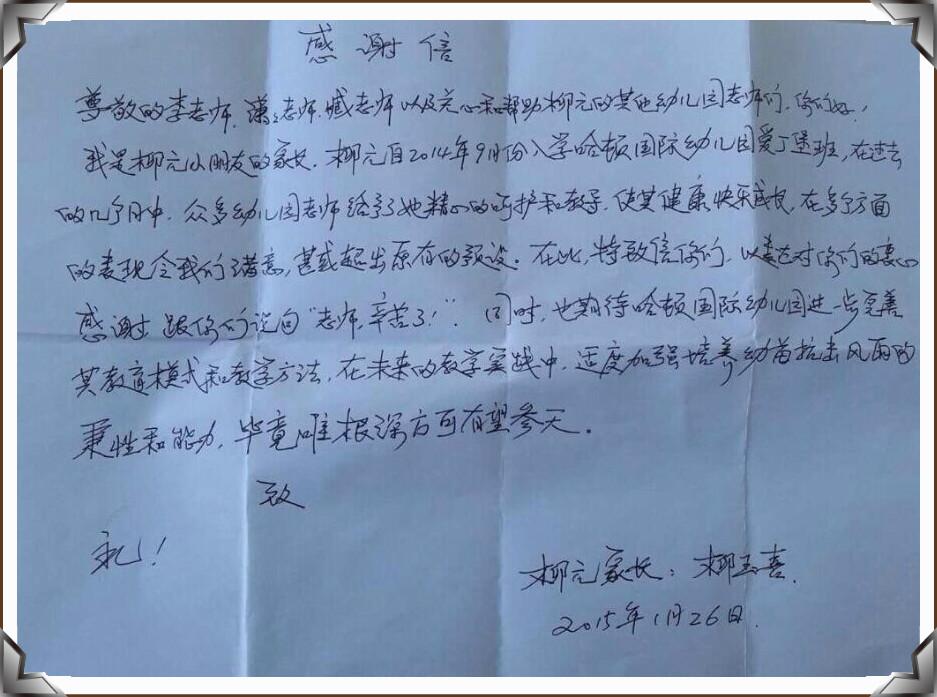 感谢信
尊敬的李老师、谭老师、臧老师以及关心和帮助柳元的其他幼儿园老师们，你们好！
我是柳元小朋友的家长．柳元自2014年9月份入学哈顿国际幼儿园爱丁堡班，在过去
的几个月中，众多幼儿园老师给予了她精心的呵护和教导，使其健康快乐成长，在多个方面
的表现令我们满意，甚或超出原有的预设。在此，特致信你们，以表达对你们的衷心
感谢，跟你们说句“老师，辛苦了！”。同时，也期待哈顿国际幼儿园进一步完善
其教育模式和教学方法，在未来的教学实践中，适度加强培养幼苗抗击风雨的
秉性和能力，毕竟唯根深方可有望参天。
致
礼！
柳元家长：柳玉喜．
2015年1月26日．